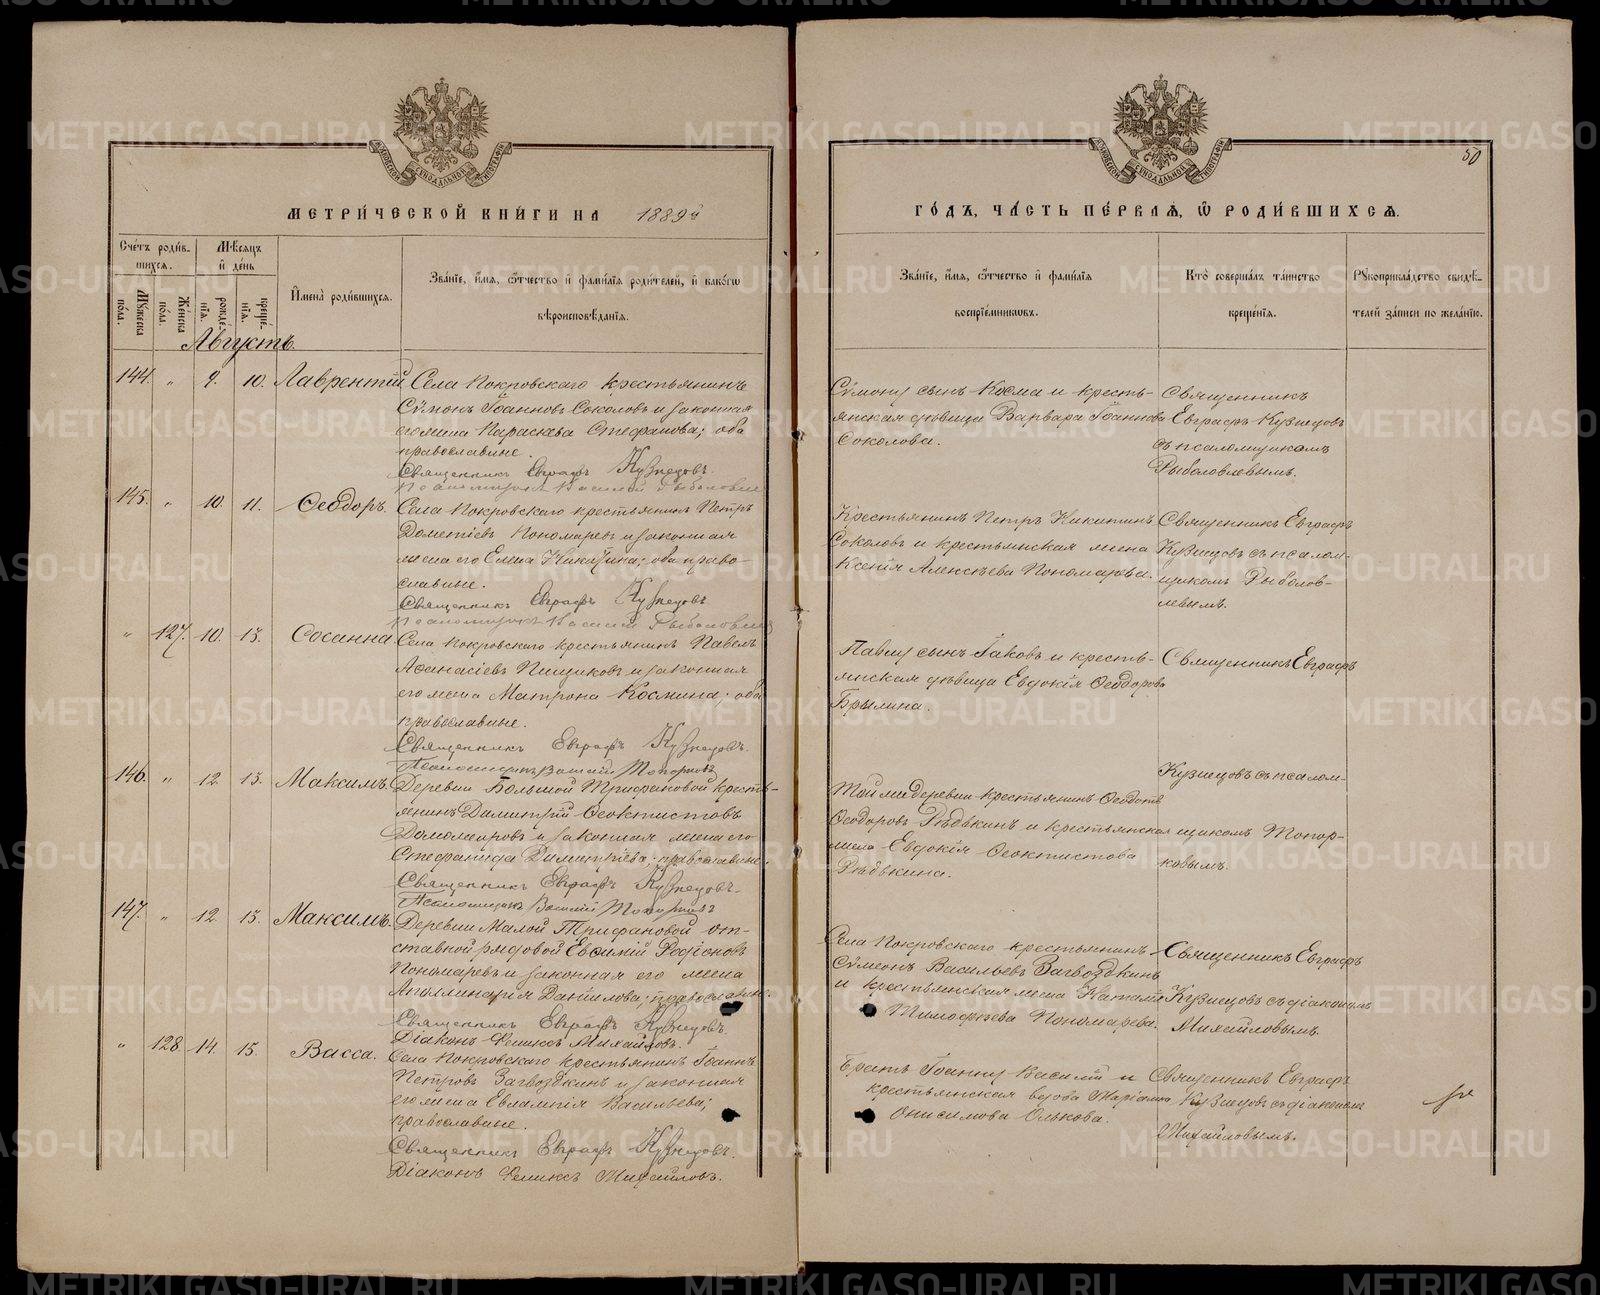 МЕТРИ́ЧЕСКОЙ КНИ́ГИ НА 1889й
Сче́тъ роди́в-
шихся.
Мѣсяцъ
и҆ де́нь
Му́жеска
по́ла.
Же́нска
по́ла.
рожде́-
нїя.
креще́-
нїя.
И҆мена̀ роди́вшихся.
Зва́нїе, и҆́мя, ѻ҆́тчество и҆ фамилїя роди́телей, и҆ како́гѡ
вѣроисповѣ́данїя.
Августъ.
144. „ 9. 10. Лаврентій
Села Покровскаго крестьянинъ
Сѵмонъ Іоанновъ Соколовъ и законная
его жена Параскева Стефанова; оба
православные.
Священникъ Евграфъ Кузнецовъ.
Псаломщикъ Василій Рыболовлев
145. „ 10. 11. Ѳеодоръ.
Села Покровскаго крестьянинъ Петръ
Дометіевъ Пономаревъ и законная
жена его Елена Никитина; оба право-
славные.
Священникъ Евграфъ Кузнецовъ
Псаломщикъ Василій Рыболовлев
„ 127. 10. 13. Сосанна.
Села Покровскаго крестьянинъ Павелъ
Аѳанасіевъ Пищиковъ и законная
его жена Матрона Космина; оба
православные.
Священникъ Евграфъ Кузнецовъ.
Псаломщикъ Василій Топорковъ
146. „ 12. 13. Максимъ.
Деревни Большой Трифановой кресть-
янинъ Димитрій Ѳеоктистовъ
и законная жена его
Стефанида Димитріева; православные.
Священникъ Евграфъ Кузнецовъ.
Псаломщикъ Василій Топорковъ
147. „ 12. 13. Максимъ.
Деревни Малой Трифановой от-
ставной рядовой Евѳимій Родіоновъ
Пономаревъ и законная его жена
Аполлинарія Данилова; православн.
Священникъ Евграфъ Кузнецовъ.
Діаконъ Феликсъ Михайловъ.
„ 128. 14. 15. Васса.
Села Покровскаго крестьянинъ Іоаннъ
Петровъ Загвоздкинъ и законная
его жена Евлампія Васильева;
православные.
Священникъ Евграфъ Кузнецовъ.
Діаконъ Феликсъ Михайловъ.
50
ГО́ДЪ, ЧА́СТЬ ПЕ́РВАЯ, Ѡ҆ РОДИ́ВШИХСЯ.
Зва́нїе, и҆́мя, ѻ҆́тчество и҆ фамилїя
воспрїе́мниковъ.
Кто̀ соверша́лъ та́инство
креще́нїя.
Рукоприкла́дство свидѣ́-
телей за́писи по жела́нїю.
Сѵмону сынъ Косма и кресть-
янская дѣвица Варвара Іоаннова
Соколова.
Священникъ
Евграфъ Кузнецовъ
съ псаломщикомъ
Рыболовлевымъ.
Крестьянинъ Петръ Никитинъ
Соколовъ и крестьянская жена
Ксенія Алексѣева Пономарева.
Священникъ Евграфъ
Кузнецовъ съ псалом-
щикомъ Рыболов-
левымъ.
Павлу сынъ Іаковъ и кресть-
янская дѣвица Евдокія Ѳеодорова
Брылина.
Священникъ Евграфъ
Кузнецовъ съ псалом-
щикомъ Топор-
ковымъ.
Той же деревни крестьянинъ Ѳеодотъ
Ѳеодоровъ Рѣдькинъ и крестьянская
жена Евдокія Ѳеоктистова
Рѣдькина.
Села Покровскаго крестьянинъ
Сѵмеонъ Васильевъ Загвоздкинъ
и крестьянская жена Наталія
Тимоѳеева Пономарева.
Священникъ Евграфъ
Кузнецовъ съ діакономъ
Михайловымъ.
Братъ Іоанну Василій и
крестьянская вдова Маріамна
Онисимова Олькова.
Священникъ Евграфъ
Кузнецовъ съ діакономъ
Михайловымъ.
METRIKI.GASO-URAL.RU